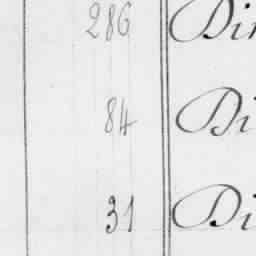 286 Di
84 Di
31 Di